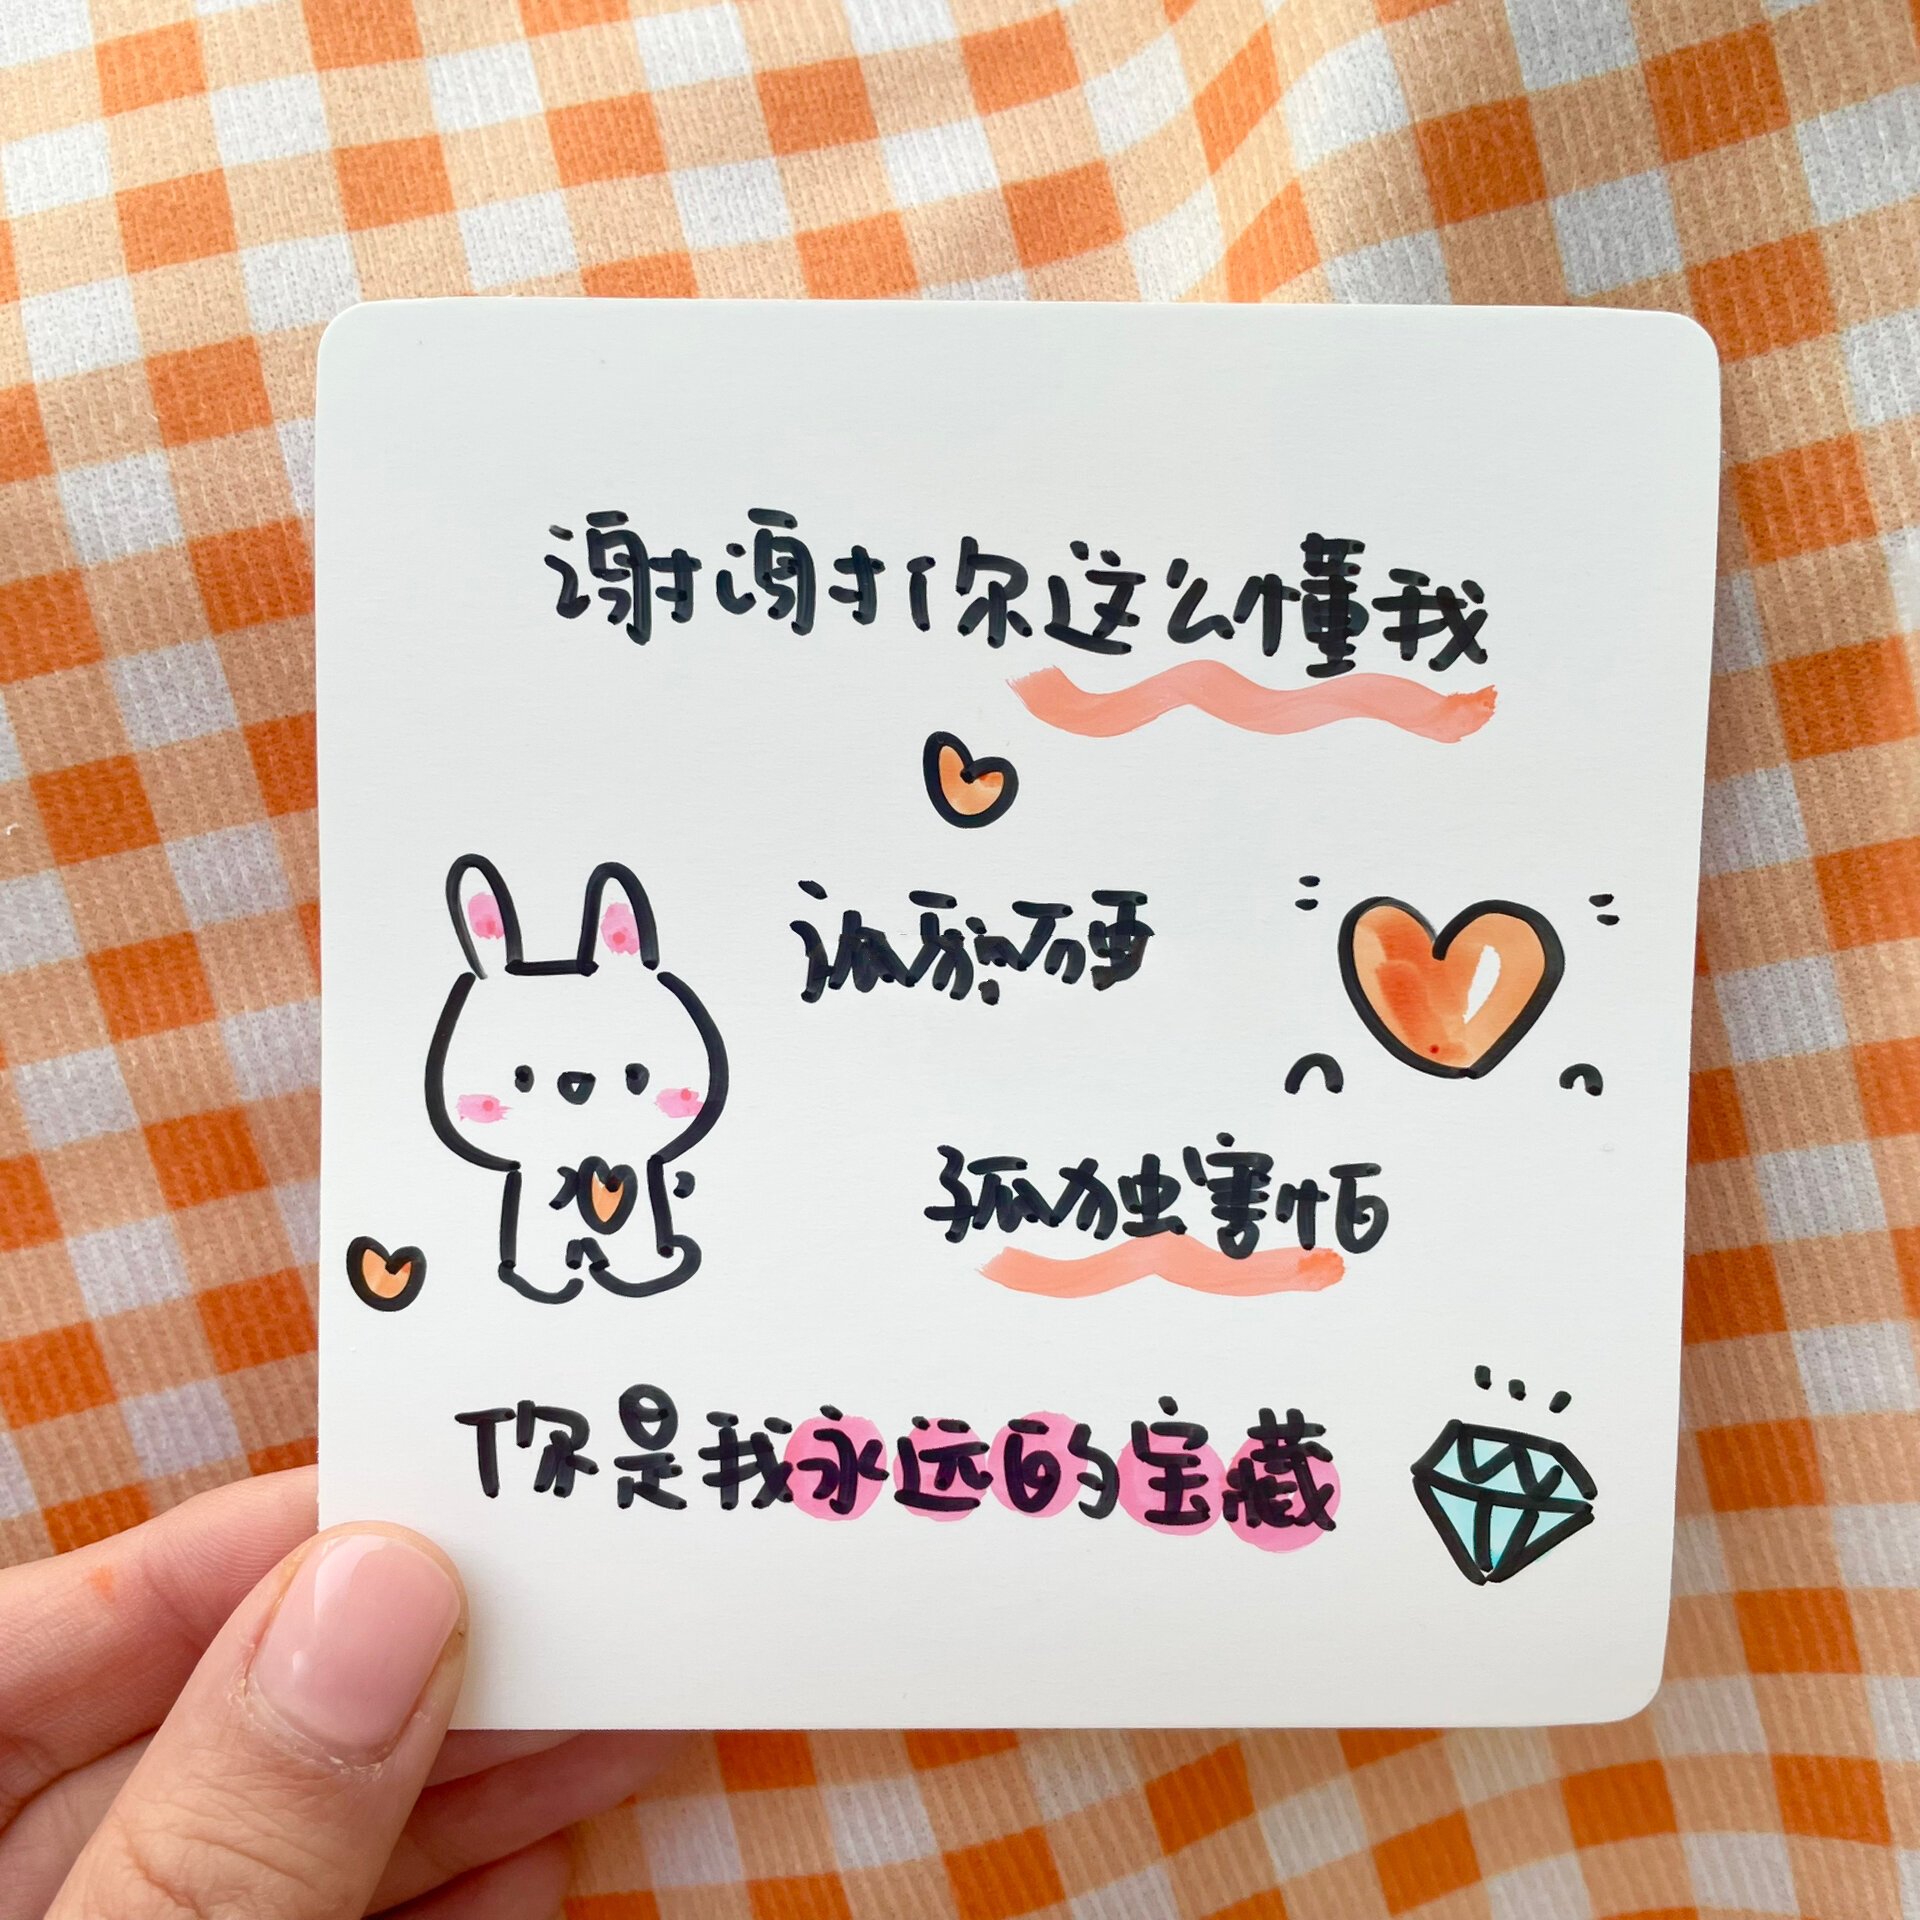 谢谢你这么懂我
孤独害怕
你是我永远的宝藏